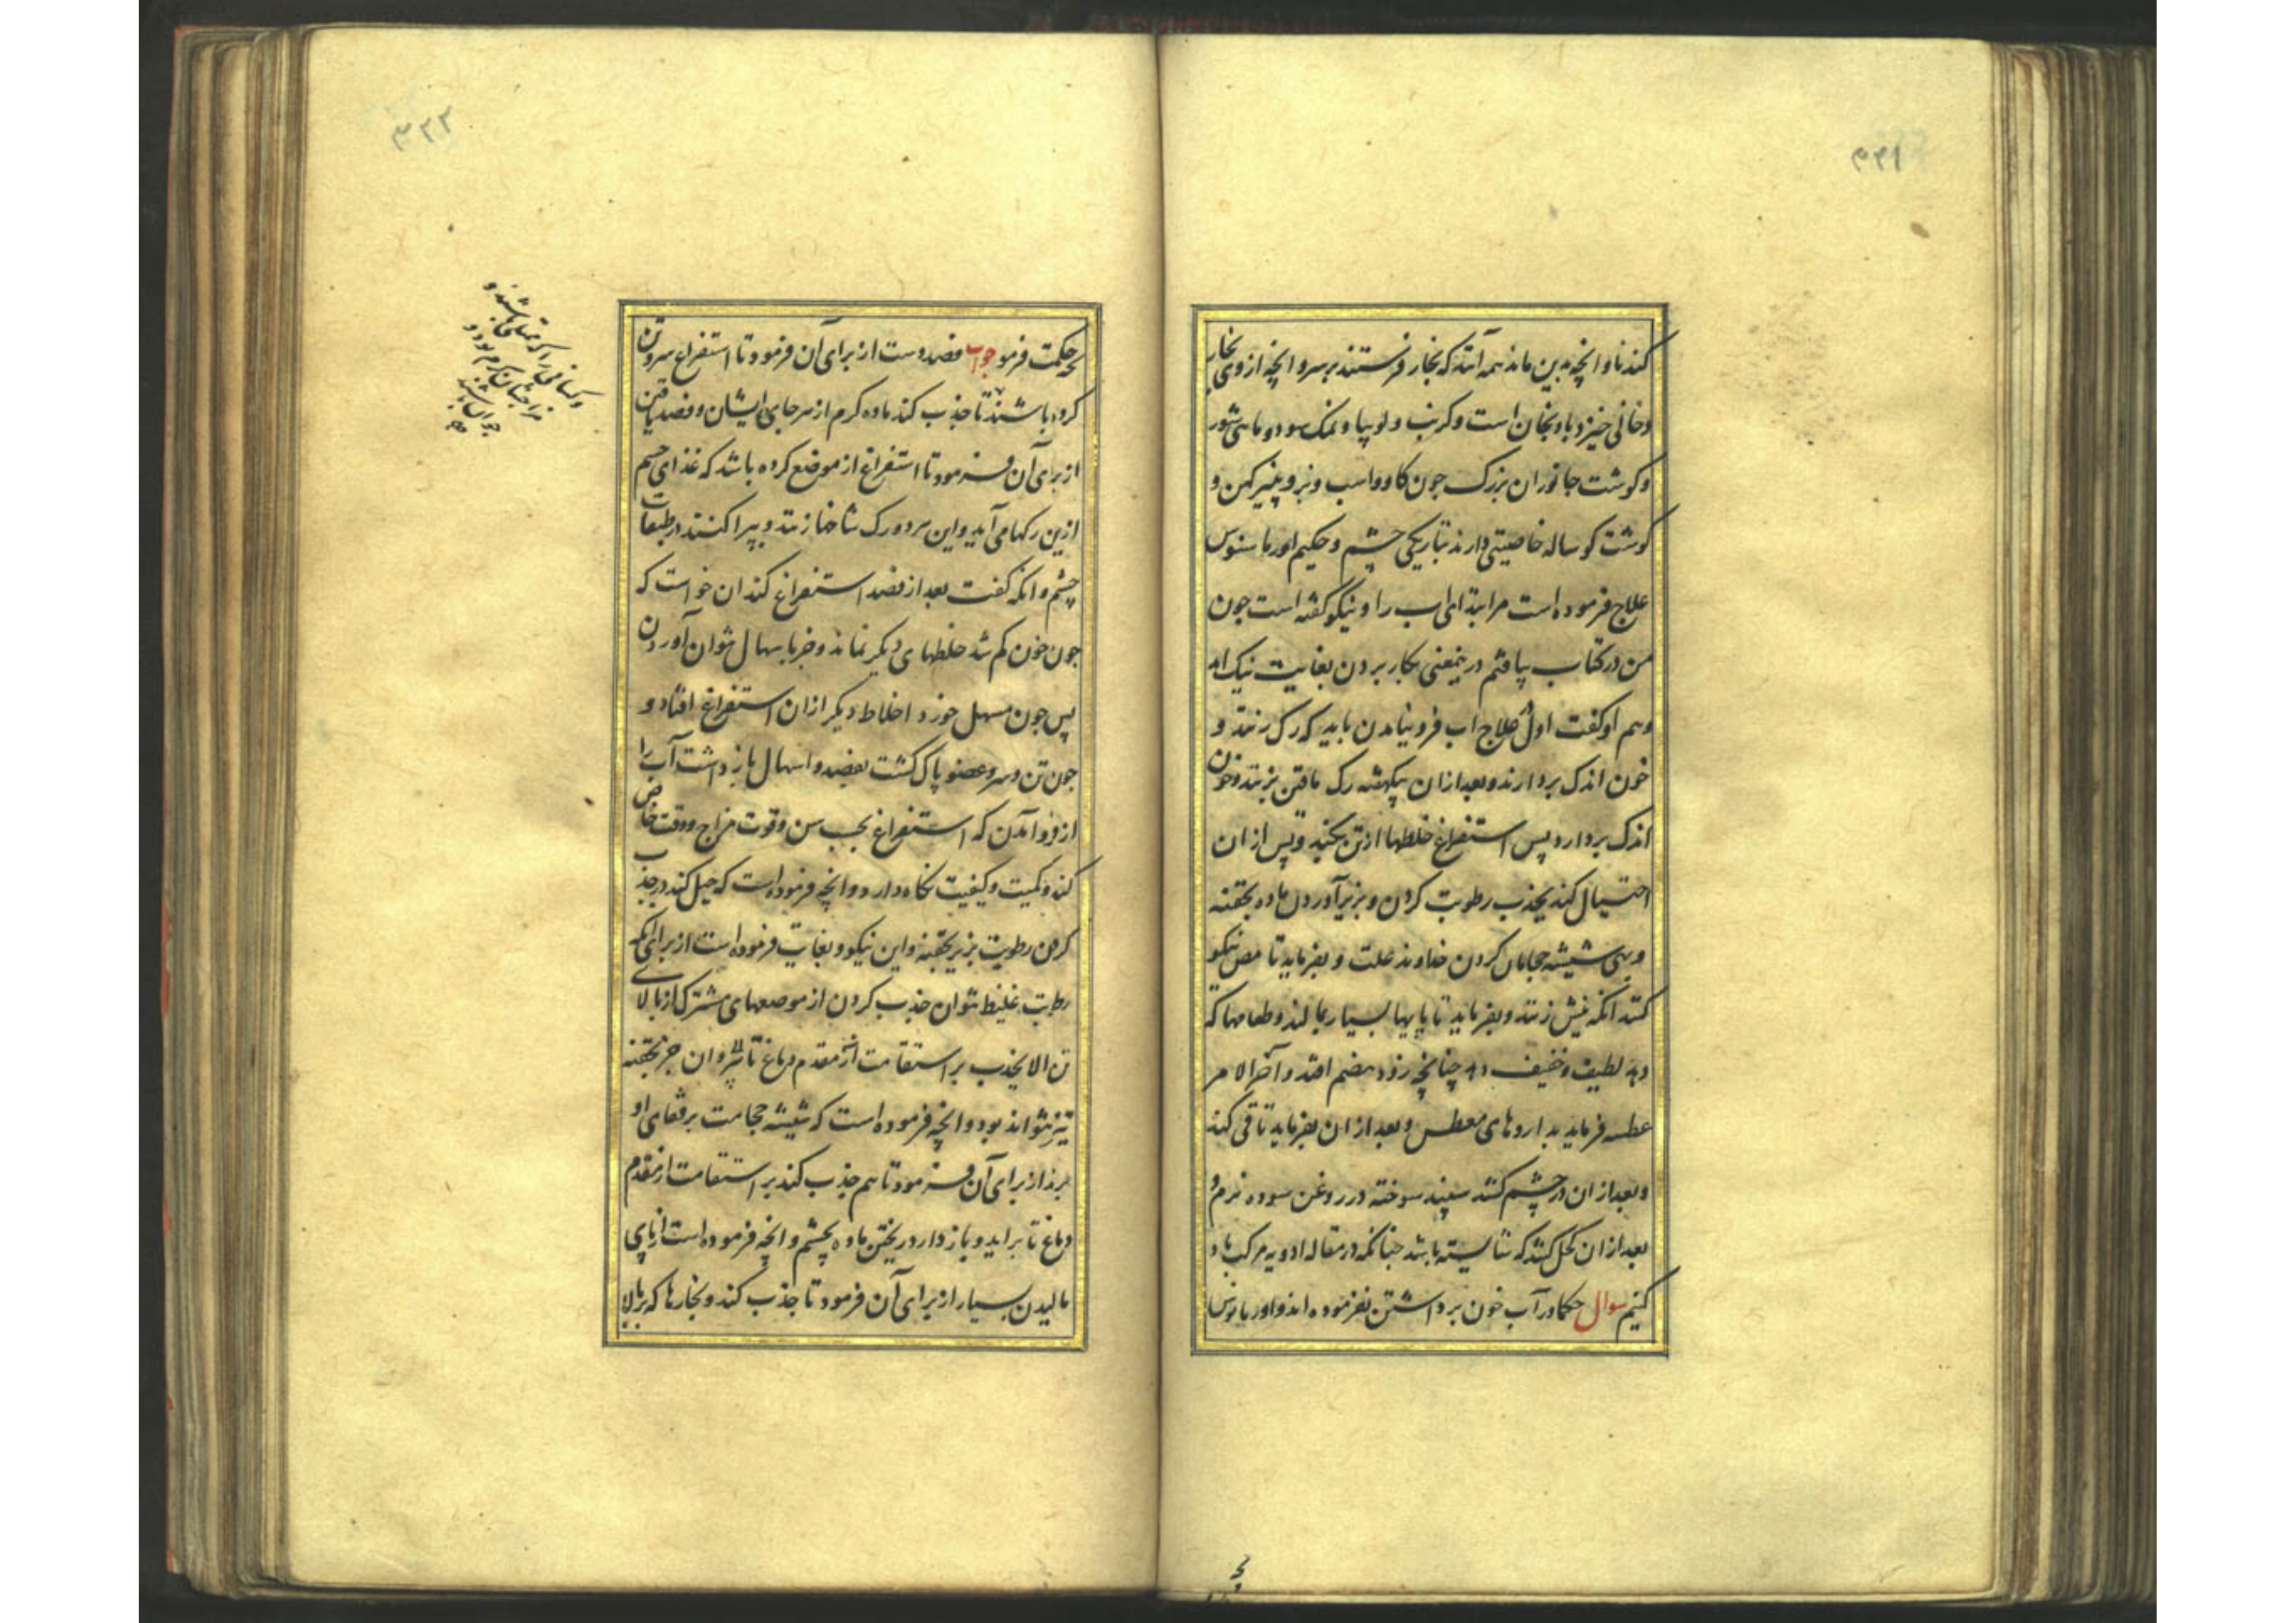 ۳۳۱
کندنا و انچه بدین ماند همه آنند که بخار فرستند بر سر و انچه ازوی بخار
دخانی خیزد بادنجان است و کرنب و لوبیا و نمک سود و ماهی شور
و کوشت جانوران بزرک جون کاو و اسب و بز و پنیر کهن و
کوشت کوساله خاصیتی دارند بتاریکی چشم و حکیم
علاج فرموده است مر ابتدای اب را و نیکو کفته است جون
من در کتاب بیافتم درینمعنی بکار بردن بغایت نیک اید
و هم او کفت اول علاج اب فرو نیامدن باید که رک زنند و
خون اندک بردارند و بعد ازان بیکهفته رک مافتن بزنند و خون
اندک بردارد پس استفراغ خلطها از تن بکنید و پس از ان
احتیال کند بجذب رطوبت کردن و بزیر آوردن ماده بحقنه
و شیشه کردن خداوند علت و بفرماید تا مص نیکو
کنند انکه نیش زنند و بفرماید تا پایها بسیار بمالند و طعامها که
دهد لطیف و خفیف دهد چنانچه زود هضم افتد و آخر الامر
عطسه فرماید بداروهای معطس و بعد از ان بفرماید تا قی کند
و بعد از ان در چشم کنند سپند سوخته در روغن سوده نرم و
بعد از ان کحل کشد که شایسته باشد جنانکه در مقاله ادویه مرکب یاد
کنیم سوال حکما در آب خون برداشتن نفرموده اند و
۳۳۲
حکمت فرمو جواب فصد دست از برای آن فرمود تا استفراغ سر و تن
کرده باشند تا جذب کند ماده کرم از سر جای ایشان و فصد ماقین
از برای آن فرمود تا استفراغ از موضع کرده باشد که غذای جسم
ازین رکها می آید و این هر دو رک شاخها زنند و بپراکنند در طبقات
چشم و انکه کفت بعد از فصد استفراغ کند ان خواست که
جون خون کم شد خلطهای دیکر نماند و جز باسهال نتوان آوردن
پس جون مسهل خورد اخلاط دیکر ازان استفراغ افتاد و
جون تن و سر و عضو پاک کشت بفصد و اسهال بازداشت آب را
از فرو آمدن که استفراغ بحسب سن و قوت مزاج و وقت حاضر
کند و کمیت و کیفیت نکاه دارد و انچه فرموده است که حیل کند در جذب
کردن رطوبت بزیر بحقنه و این نیکو و بغایت فرموده است از برای انکه
رطوبت غلیظ نتوان جذب کردن از موضعهای مشترک از بالای
تن الا بجذب بر استقامت از مقدم دماغ تا و ان جز بحقنه
تیز نتواند بود و انچه فرموده است که شیشه حجامت بر قفای او
برند از برای آن فرمود تا هم جذب کند بر استقامت از مقدم
دماغ تا براید و باز دارد ریختن ماده بچشم و انچه فرموده است از پای
مالیدن بسیار از برای آن فرمود تا جذب کند و بخارها که بر بالا
و کسانی را که ممتلی باشند و
مزاجشان کرم بود و
جوان باشند